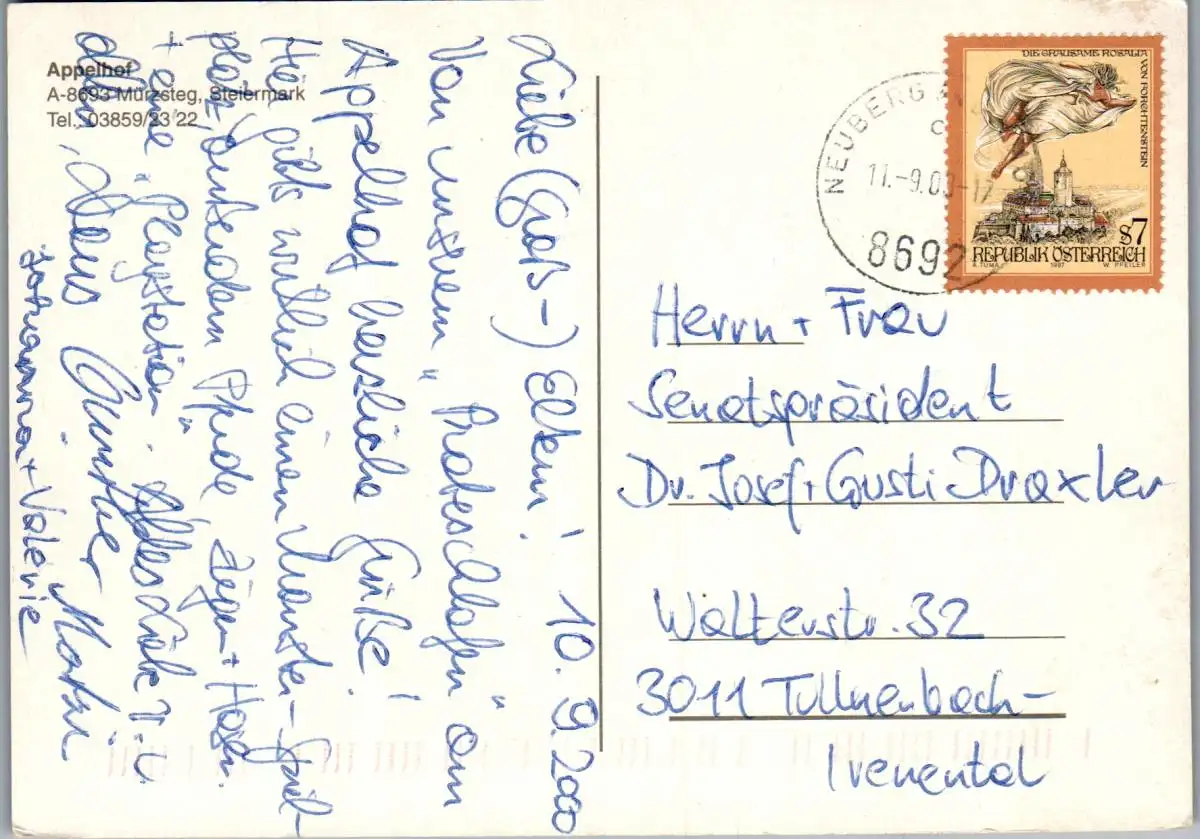 Appelhof
A-8693 Mürzsteg, Steiermark
Tel. 03859/23 22
Liebe (Groß-) Eltern! 10.9.2000
Von unserem „Probeschlafen" am
Appelhof herzliche Grüße!
Hier gibts wirklich einen Monster-Spiel-
platz, Pferde, Ziegen + Hasen
+ eine „Playstation".
Günther
Johanna + Valerie
DIE GRAUSAME ROSALIA
VON FORCHTENSTEIN
S7
REPUBLIK ÖSTERREICH
A. TUMA 1997 W. PFEILER
NEUBERG
11.-9.00-17
8692
Herrn + Frau
Senatspräsident
Dr. Josef + Gusti Draxler
Walterstr. 32
3011 Tullnerbach-
Irenental